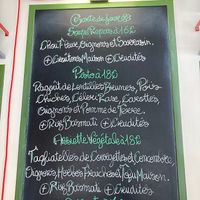 Carte du jour
Soupe Repas à 15$
Chou Fleur, Oignons et Sarrasin
+ Croûtons Maison + Crudités
Pasto à 18$
Ragoût de Lentilles Brunes, Pois
Chiches, Céleri Rave, Carottes,
Oignons et Pomme de Terre
+ Riz Basmati + Crudités
Assiette Végétale à 18$
Tagliatelles de Courgettes et Concombre,
Oignons, Herbes Fraîches et Tofu Maison
+ Riz Basmati + Crudités